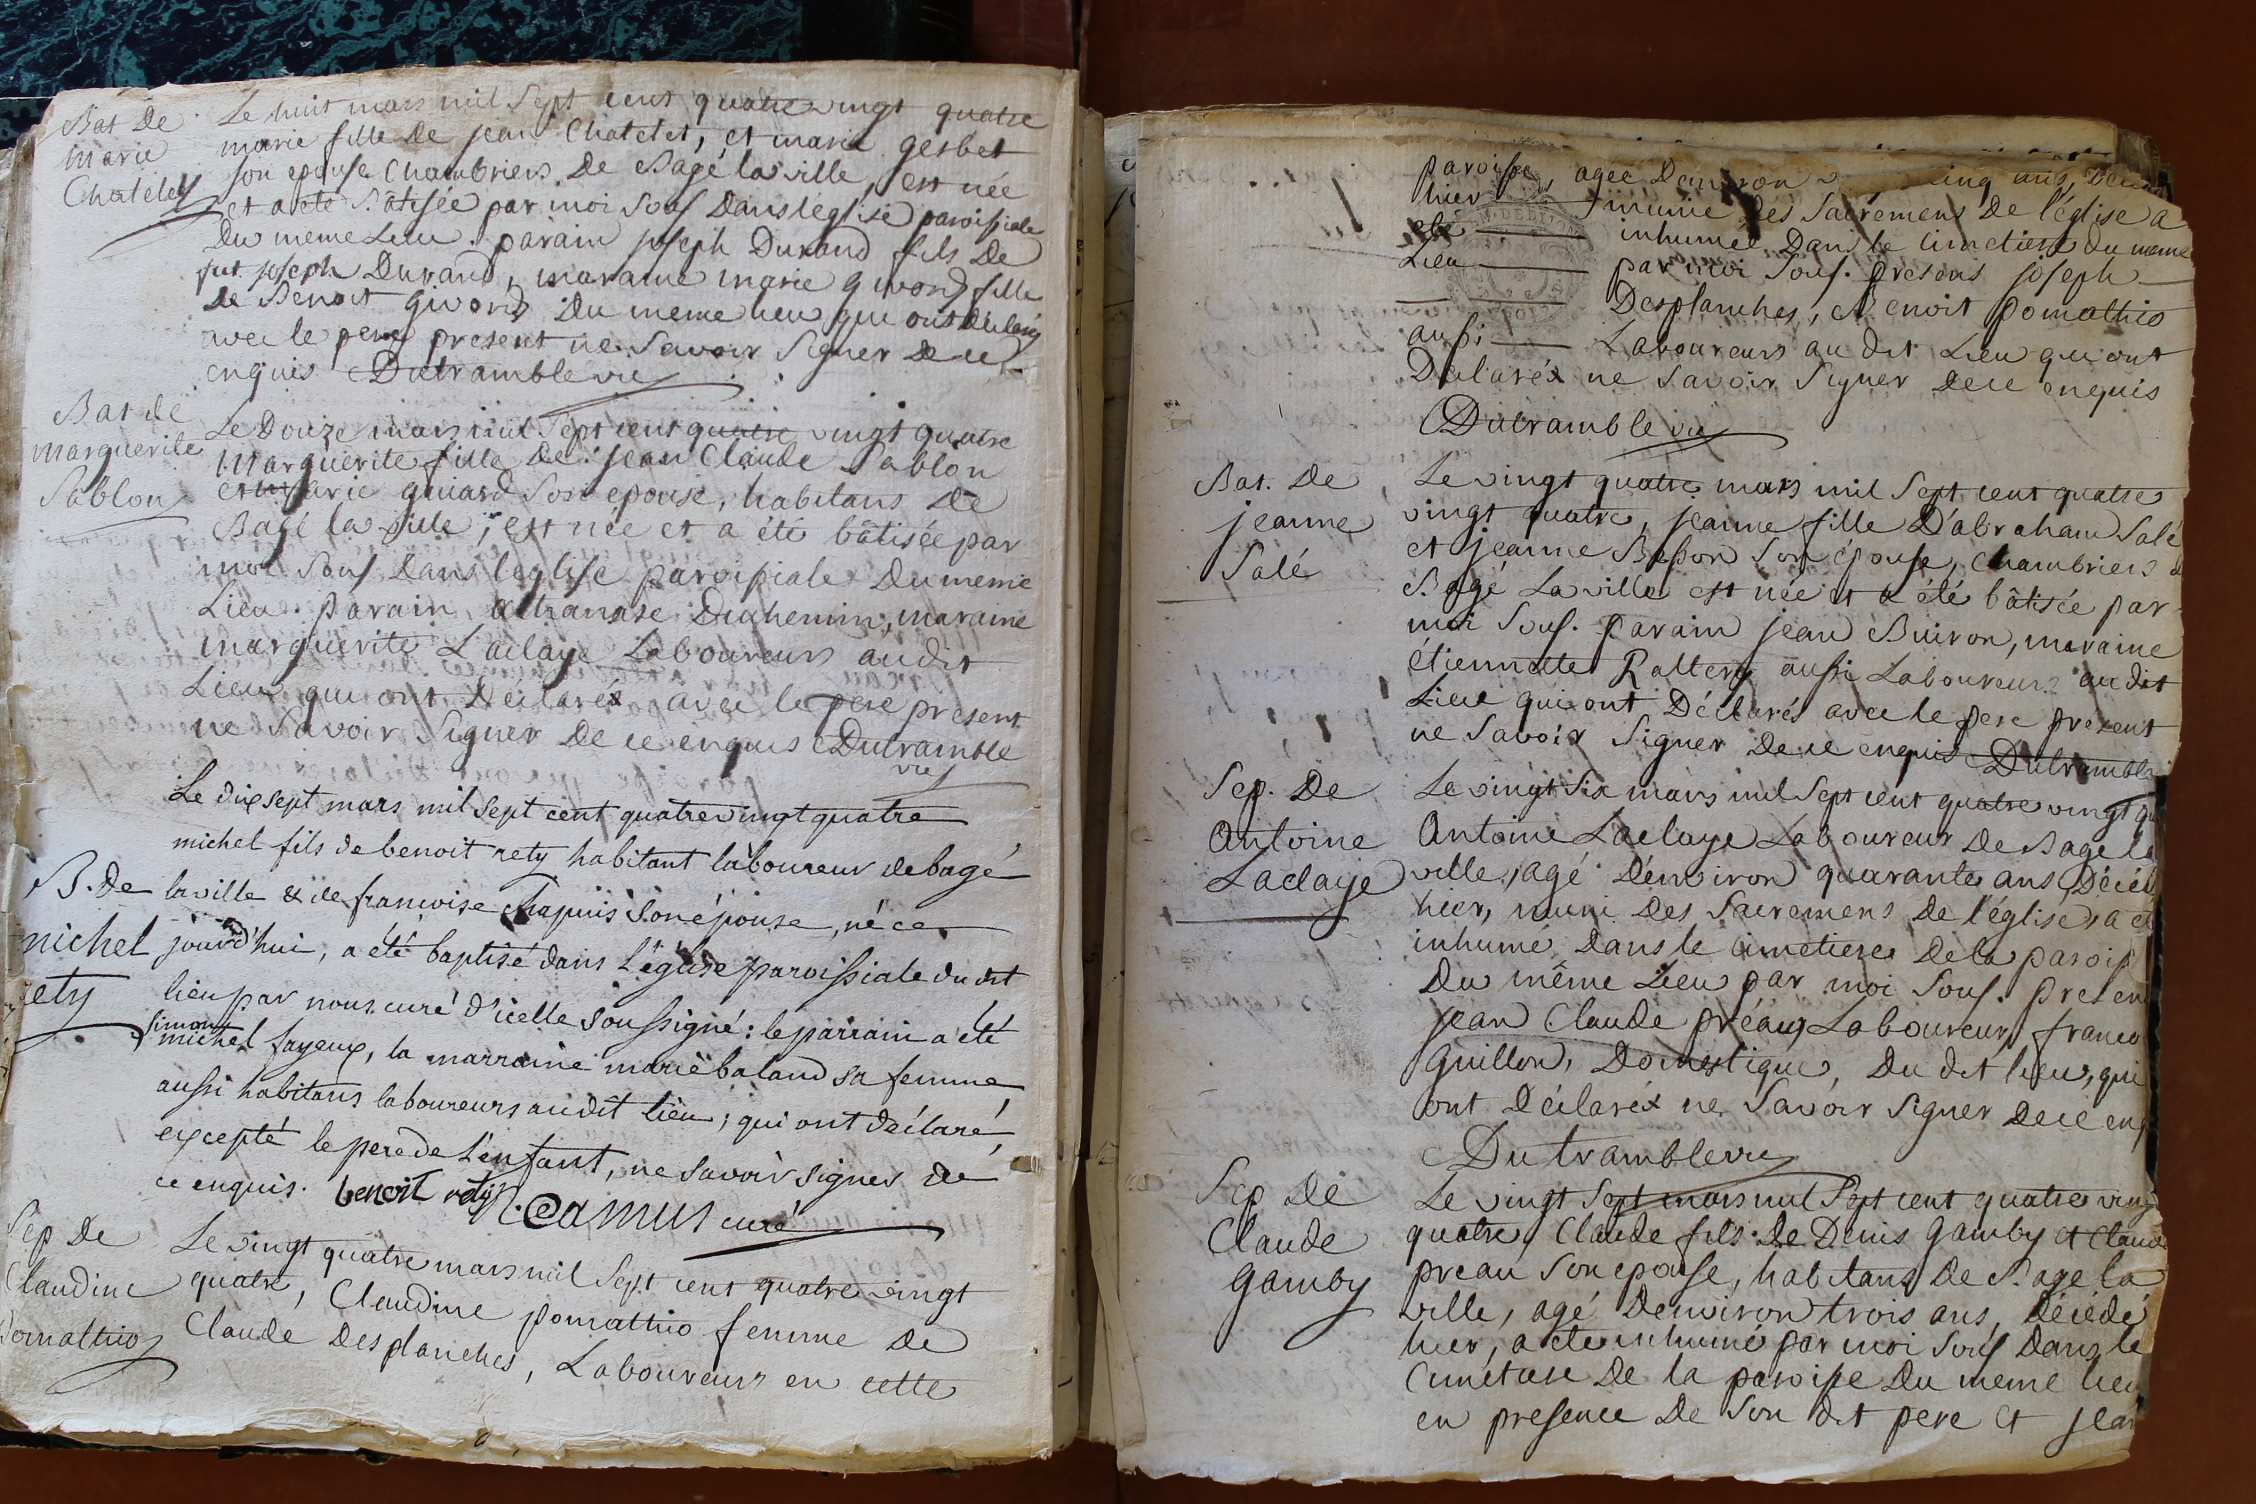 Bat De
Marie
Chatelet
Le huit mars mil Sept cent quatre vingt quatre
marie fille De jean Chatelet, et marie gerbet
son epouse Chambriers De Bagé la ville, est née
et a eté Bâtisée par moi Souss Dans l'eglise paroissiale
Du meme Lieu. parain joseph Durand fils De
fut joseph Durand, maraine marie givord fille
de Benoit Givord Du meme lieu qui ont déclarés
avec le pere present ne Savoir Signer De ce
enquis Dutramble vic
Bat de
marguerite
Sablon
Le Douze mars mil Sept cent quatre vingt quatre
Marguerite fille De jean Claude Sablon
et marie guiard Son epouse, habitans De
Bagé la ville, est née et a été bâtisée par
moi Souss Dans l'eglise paroissiale Du meme
Lieu. parain Athanase Duchemin, maraine
marguerite Laclaye Laboureurs au dit
Lieu qui ont Déclarex avec le pere present
ne Savoir Signer De ce enquis Dutramble
vic
B. De
michel
rety
Le dix sept mars mil sept cent quatre vingt quatre
michel fils de benoit rety habitant laboureur de bagé
la ville & de francoise chapuis son épouse, né ce
jourd'hui, a été baptisé dans l'église paroissiale du dit
lieu par nous curé d'icelle soussigné : le parrain a été
simont
michel fayeux, la marraine marie baland sa femme
aussi habitans laboureurs audit lieu ; qui ont déclaré,
excepté le pere de l'enfant, ne savoir signer de
ce enquis. benoit rety. Camus curé
Sep De
Claudine
Pomathio
Le vingt quatre mars mil Sept cent quatre vingt
quatre, Claudine pomathio femme De
Claude Desplanches, Laboureurs en cette
paroisse, agée Denviron cinq ans,
hier munie des Sacremens De l'église a
eté inhumée Dans le cimetiere Du meme
Lieu par moi Souss. presens joseph
Desplanches, Benoit pomathio
aussi Laboureurs au dit Lieu qui ont
Déclaréx ne Savoir Signer De ce enquis
Dutramble vic
Bat. De
jeanne
Salé
Le vingt quatre mars mil Sept cent quatre
vingt quatre, jeanne fille D'abraham Salé
et jeanne Besson Son épouse, Chambriers de
Bagé La ville est née et a été bâtisée par
moi Souss. parain jean Buiron, maraine
étiennette Rattery aussi Laboureurs au dit
Lieu qui ont Déclarés avec le pere present
ne Savoir Signer De ce enquis Dutramble
Sep. De
Antoine
Laclaye
Le vingt Six mars mil Sept cent quatre vingt qu
Antoine Laclaye Laboureur De Bage la
ville, agé D'environ quarante ans, Décéd
hier, muni Des Sacremens De l'église, a et
inhumé Dans le cimetiere De la parois
Du même Lieu par moi Souss. presen
jean Claude préau, Laboureur, franco
Guillon, Domestique, Du dit lieu, qui
ont Déclaréx ne Savoir Signer De ce enq
Dutramble vic
Sep De
Claude
Gamby
Le vingt Sept mars mil Sept cent quatre ving
quatre, Claude fils De Denis Gamby et Claud
preau Son epouse, habitans De Bage la
ville, agé Denviron trois ans, Décédé
hier, a eté inhumé par moi Souss Dans le
Cimetiere De la paroisse Du meme lieu
en presence De Son dit pere et jean